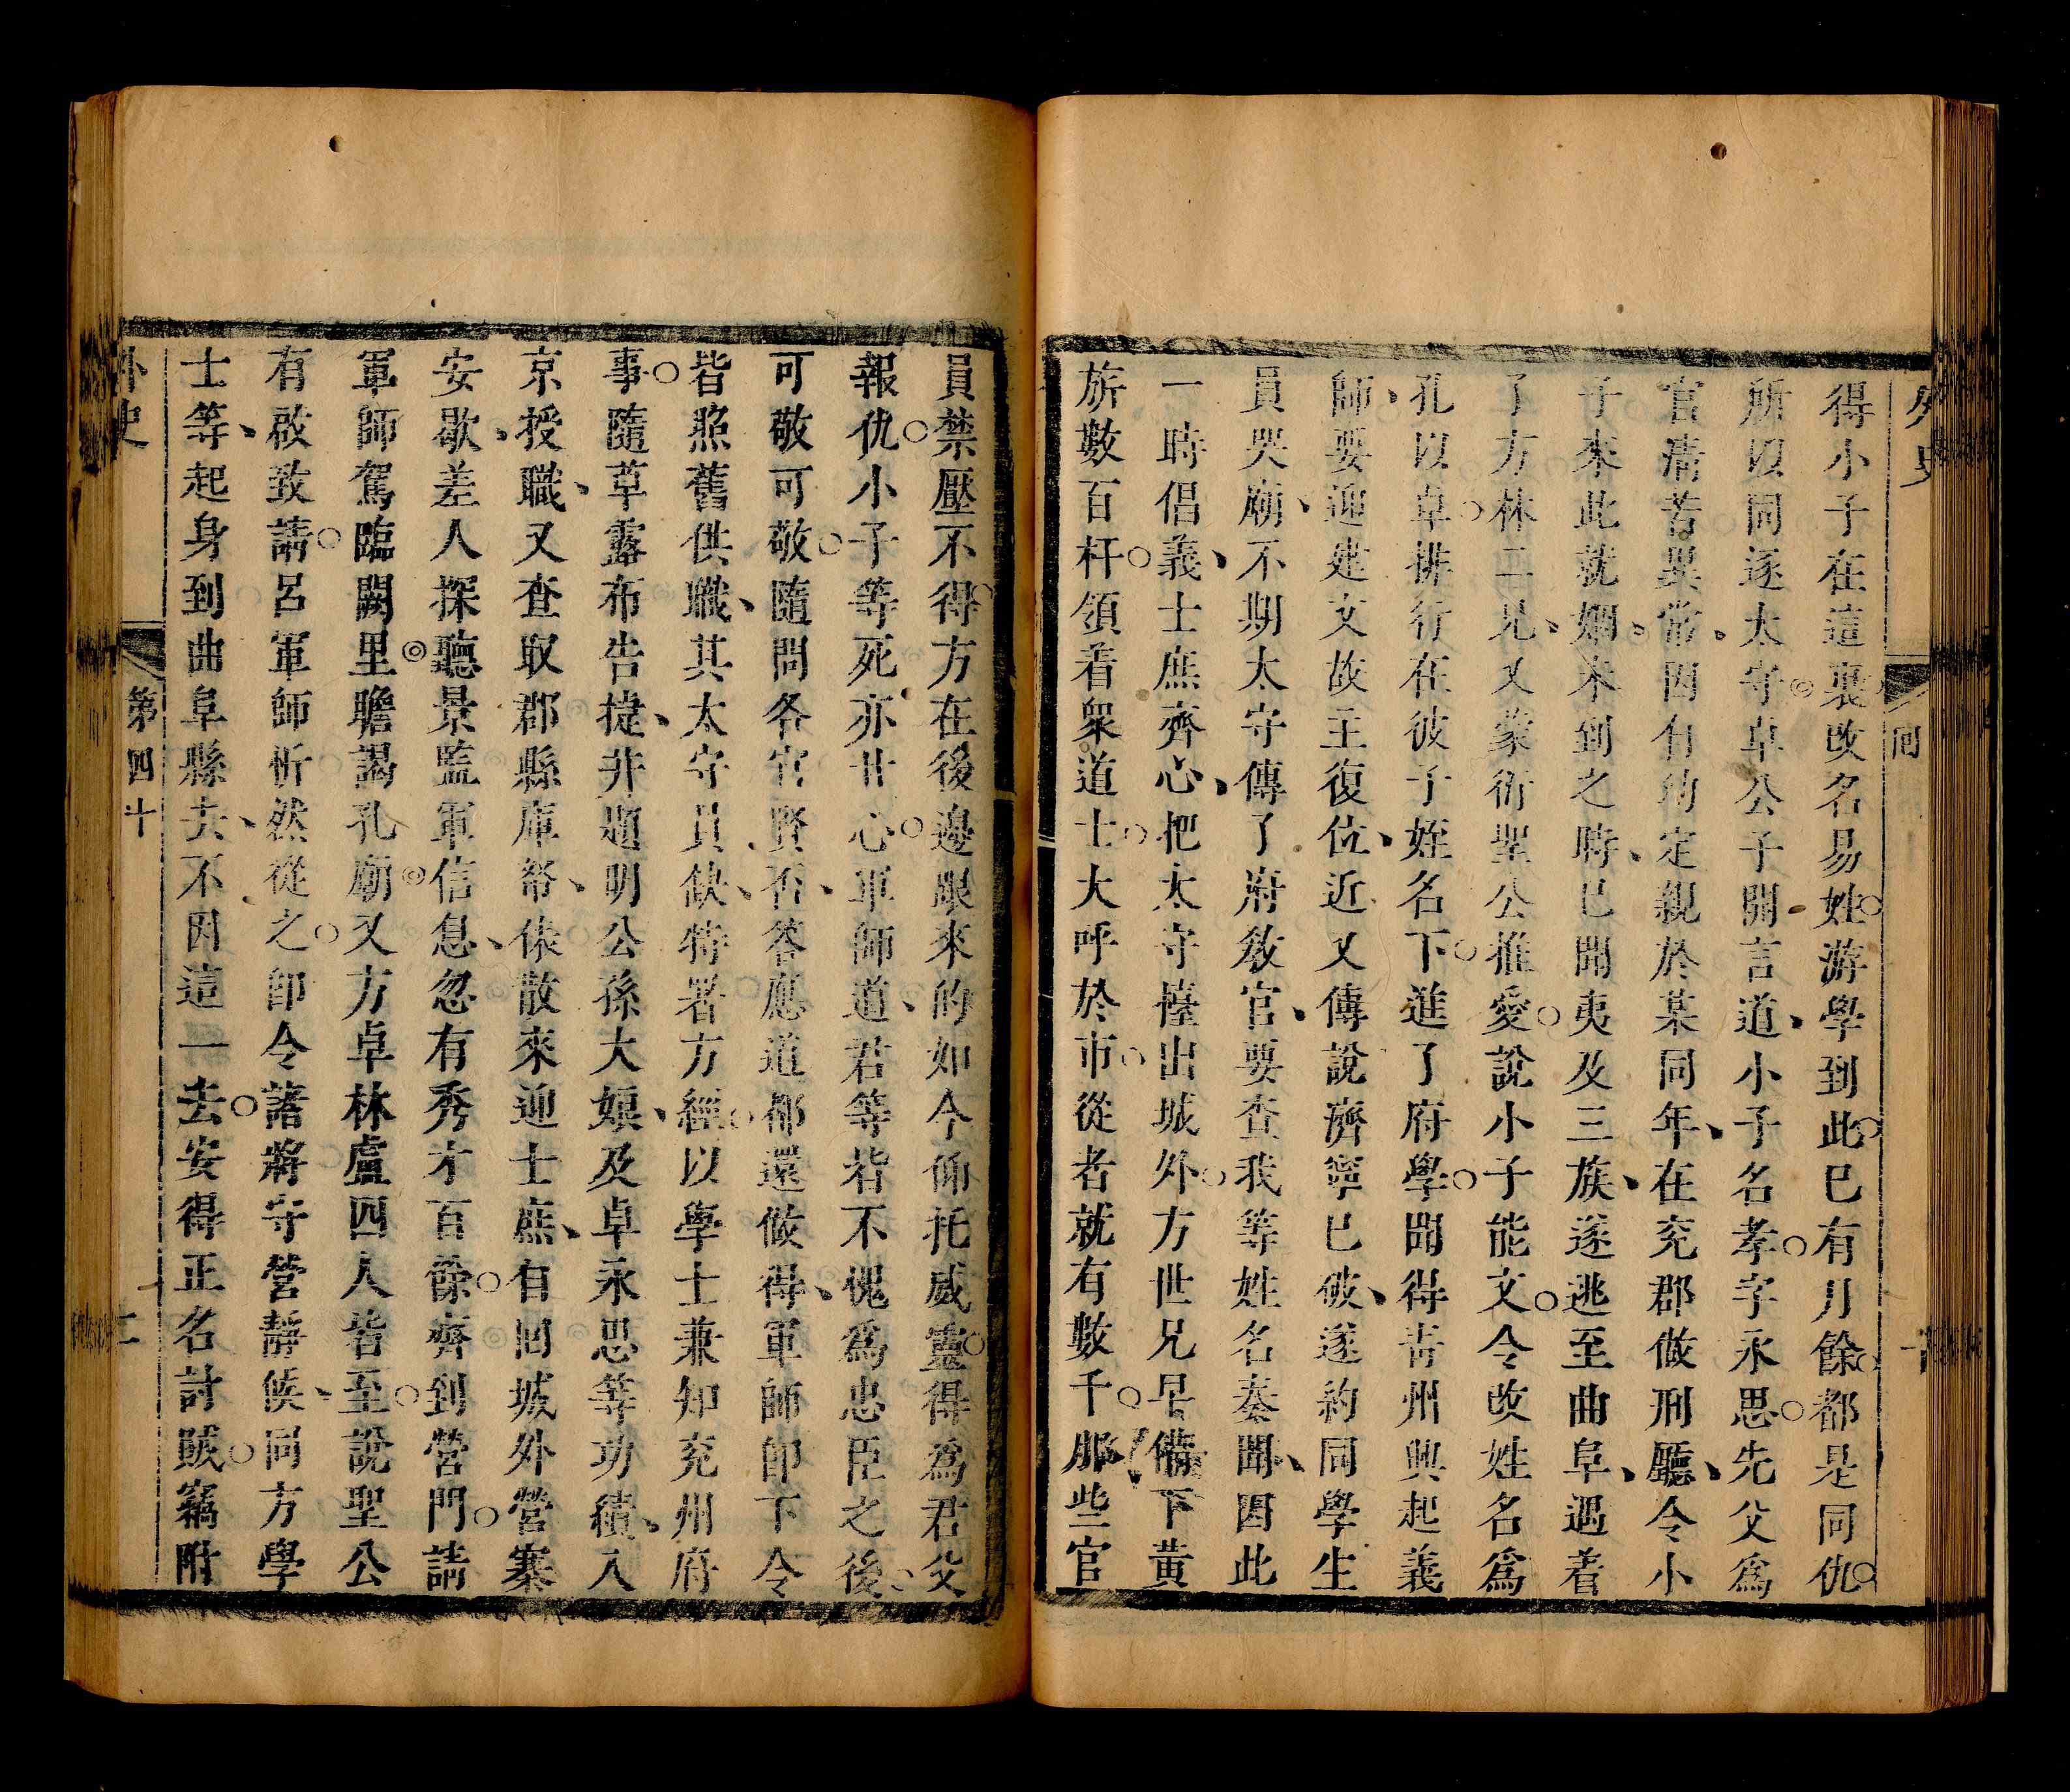 外史
回
十
得小子在這裏改名易姓游學到此巳有月餘都是同仇
所以同逐太守卓公子開言道小子名孝字永思先父爲
官清苦異常因自幼定親於某同年在兖郡做刑廳令小
子來此就婣未到之時巳聞夷及三族遂逃至曲阜遇着
了方林二兄又蒙衍聖公推愛說小子能文令改姓名爲
孔以卓排行在彼子姪名下進了府學聞得靑州興起義
師要迎建文故主復位近又傳說濟寧巳破遂約同學生
員哭廟不期太守傳了府敎官要查我等姓名奏聞因此
一時倡義士庶齊心把太守攆出城外方世兄早備下黃
旂數百杆領着衆道士大呼於市從者就有數千那些官
員禁壓不得方在後邊跟來的如今仰托威靈得爲君父
報仇小子等死亦甘心軍師道君等皆不愧爲忠臣之後
可敬可敬隨問各官賢否答應道都還做得軍師卽下令
皆照舊供職其太守員缺特署方經以學士兼知兖州府
事隨草露布告捷并題明公孫大娘及卓永思等功績入
京授職又查取郡縣庫帑俵散來迎士庶自回城外營寨
安歇差人探聽景監軍信息忽有秀才百餘齊到營門請
軍師駕臨闕里瞻謁孔廟又方卓林盧四人皆至說聖公
有啟致請呂軍師忻然從之卽令諸將守營靜候同方學
士等起身到曲阜縣去不因這一去安得正名討賊竊附
外史
第四十
二